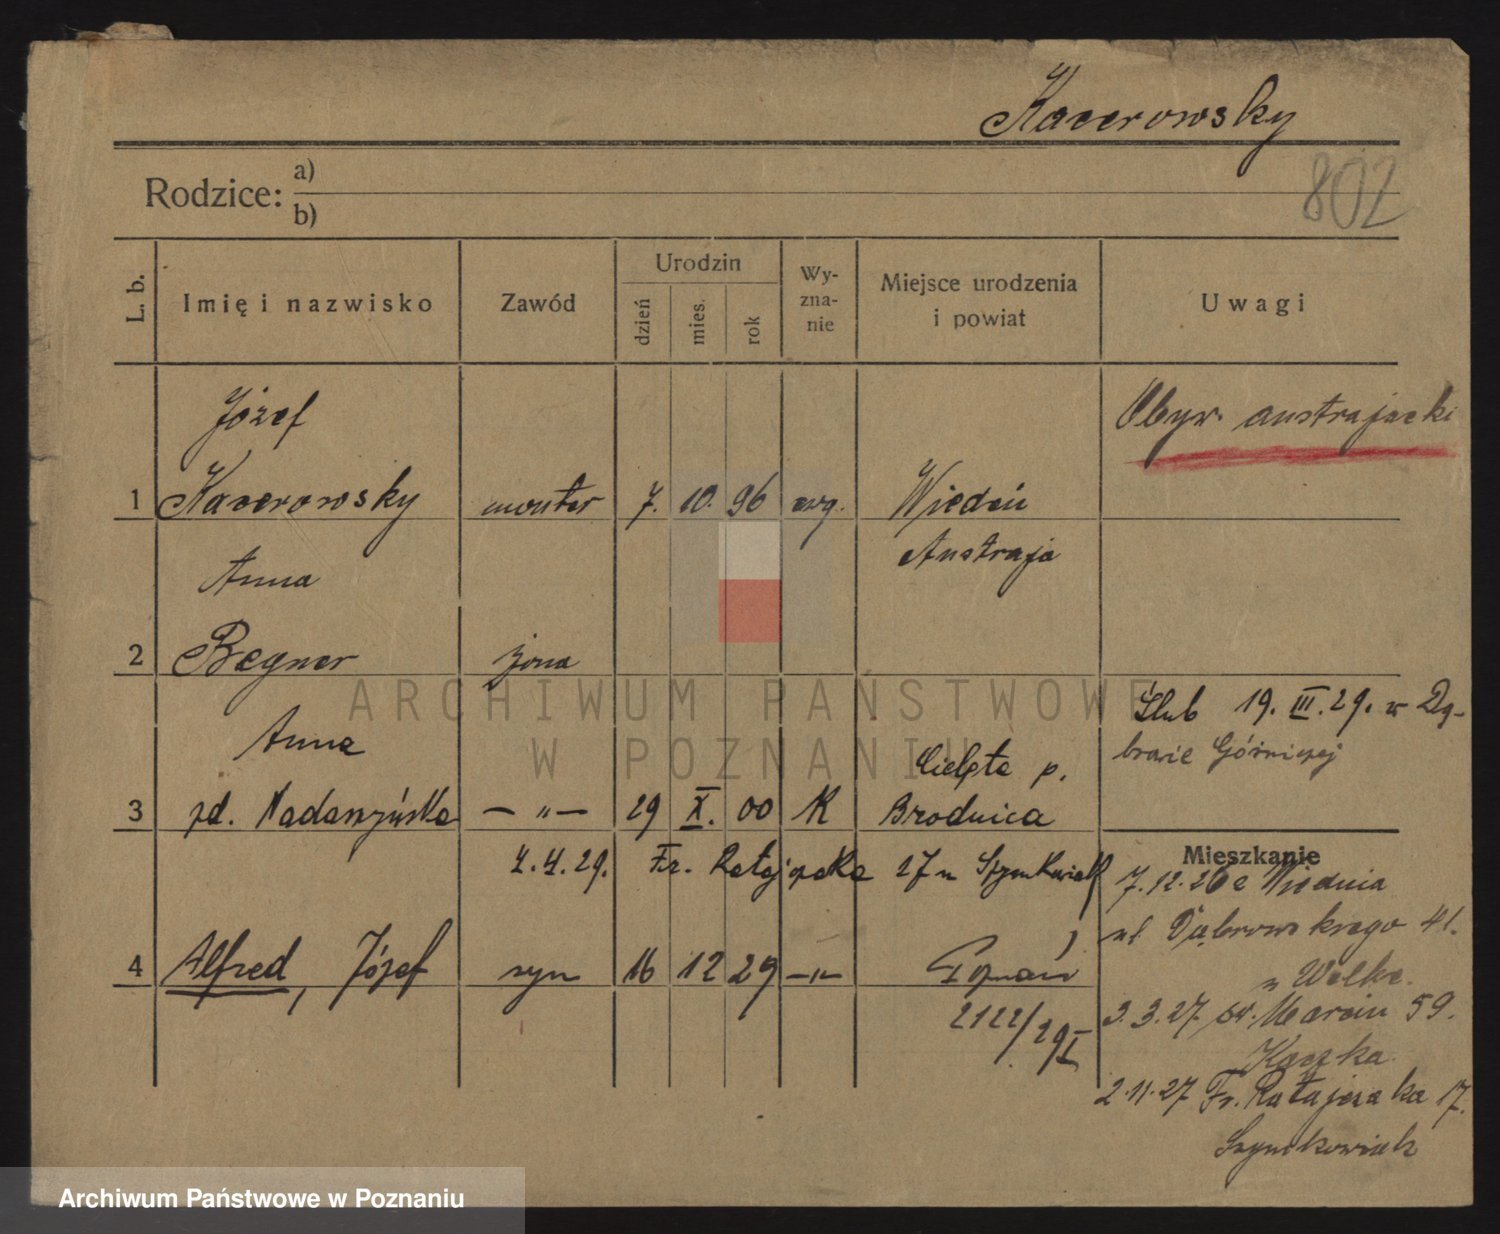 Kacerowsky
802
Rodzice: a)
b)
L. b.
Imię i nazwisko
Zawód
Urodzin
dzień
mies.
rok
Wy-
zna-
nie
Miejsce urodzenia
i powiat
Uwagi
Józef
Obyw. austrajacki
1 Kacerowsky monter 7. 10. 96 ewg. Wiedeń
Austraja
Anna
2 Begner żona
ARCHIWUM PAŃSTWOWE
W POZNANIU
Ślub 19. III. 29. w Dą-
browie Górniczej
Anna
Cielęta p.
3 zd. Nadaszyńska — " — 29 X. 00 K Brodnica
4. 4. 29. Fr. Ratajczaka 17 u Szymkowiak
Mieszkanie
7. 12. 26 z Wiednia
ul. Dąbrowskiego 41.
u Wolke.
4 Alfred, Józef syn 16 12 29 —"— Poznań
2122/29/I
3. 3. 27. św. Marcin 59.
Kaczka
2. 11. 27 Fr. Ratajczaka 17.
Szymkowiak
Archiwum Państwowe w Poznaniu